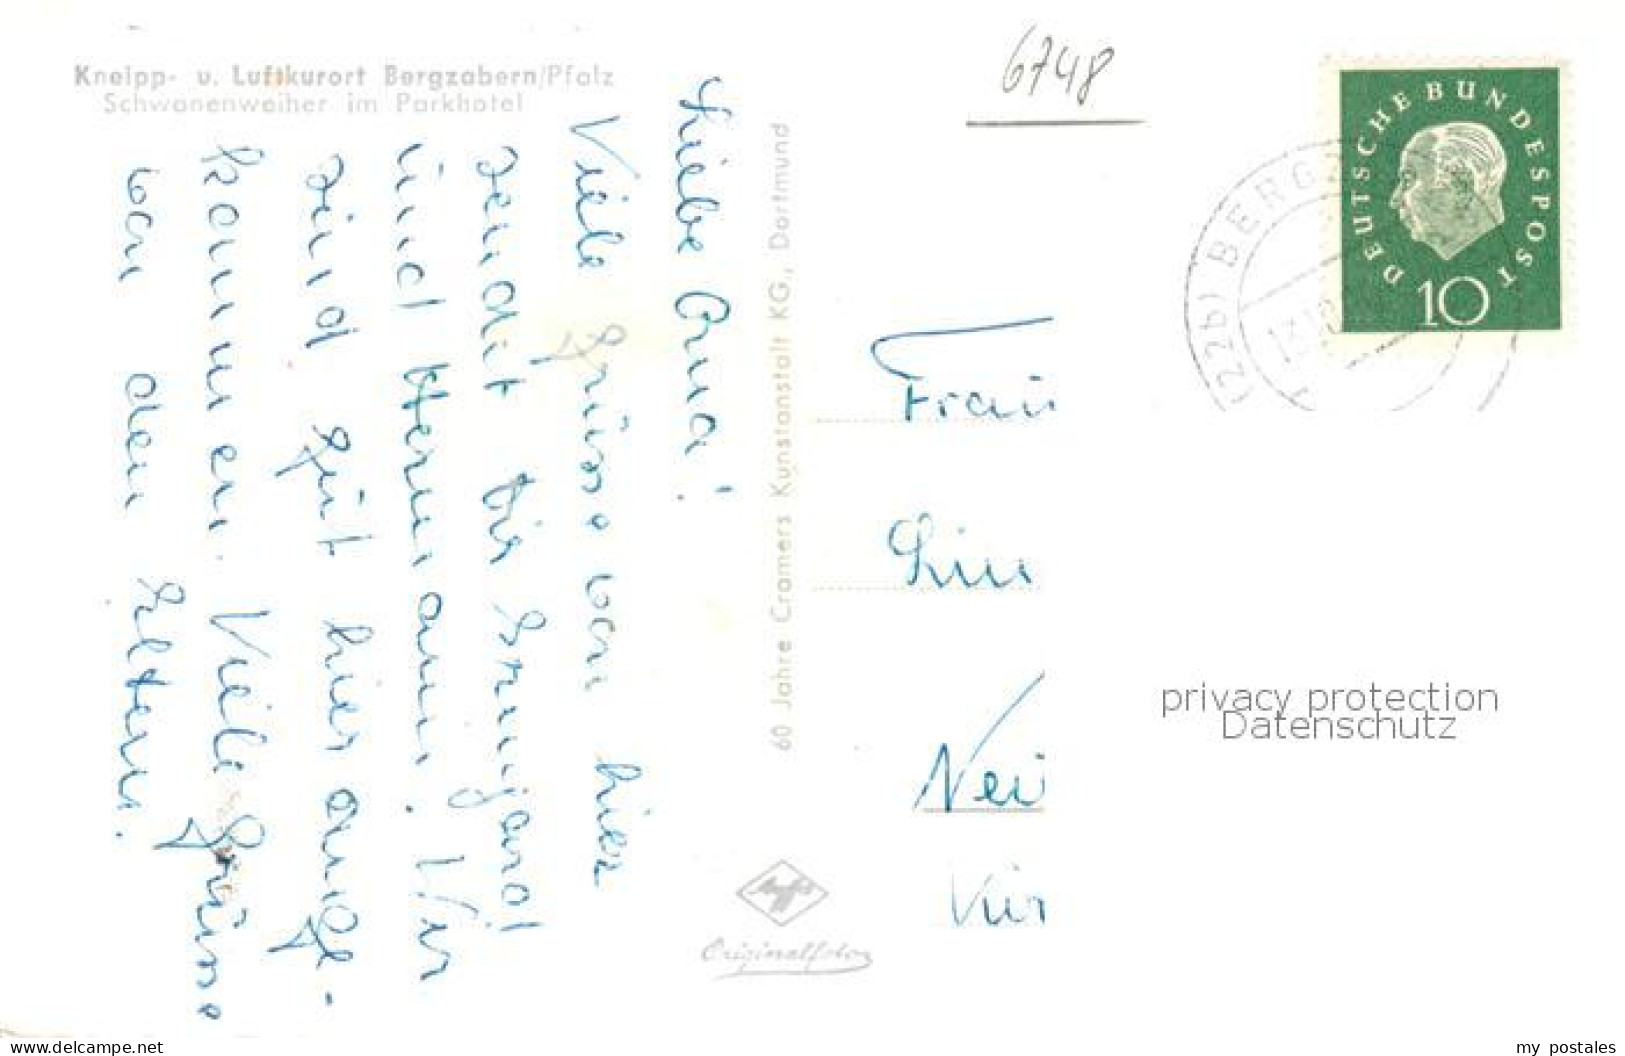 Kneipp- u. Luftkurort Bergzabern/Pfalz
Schwanenweiher im Parkhotel
Liebe Erna!
Viele Grüsse von hier
sendet Dir
und Hermann. Wir
sind gut hier ange-
kommen. Viele Grüsse
von den Eltern.
60 Jahre Cramers Kunstanstalt KG., Dortmund
Agfa
Originalfoto
6748
DEUTSCHE BUNDESPOST
10
(22b) BERG
Frau
Lin
Neu
privacy protection
Datenschutz
www.delcampe.net
my postales